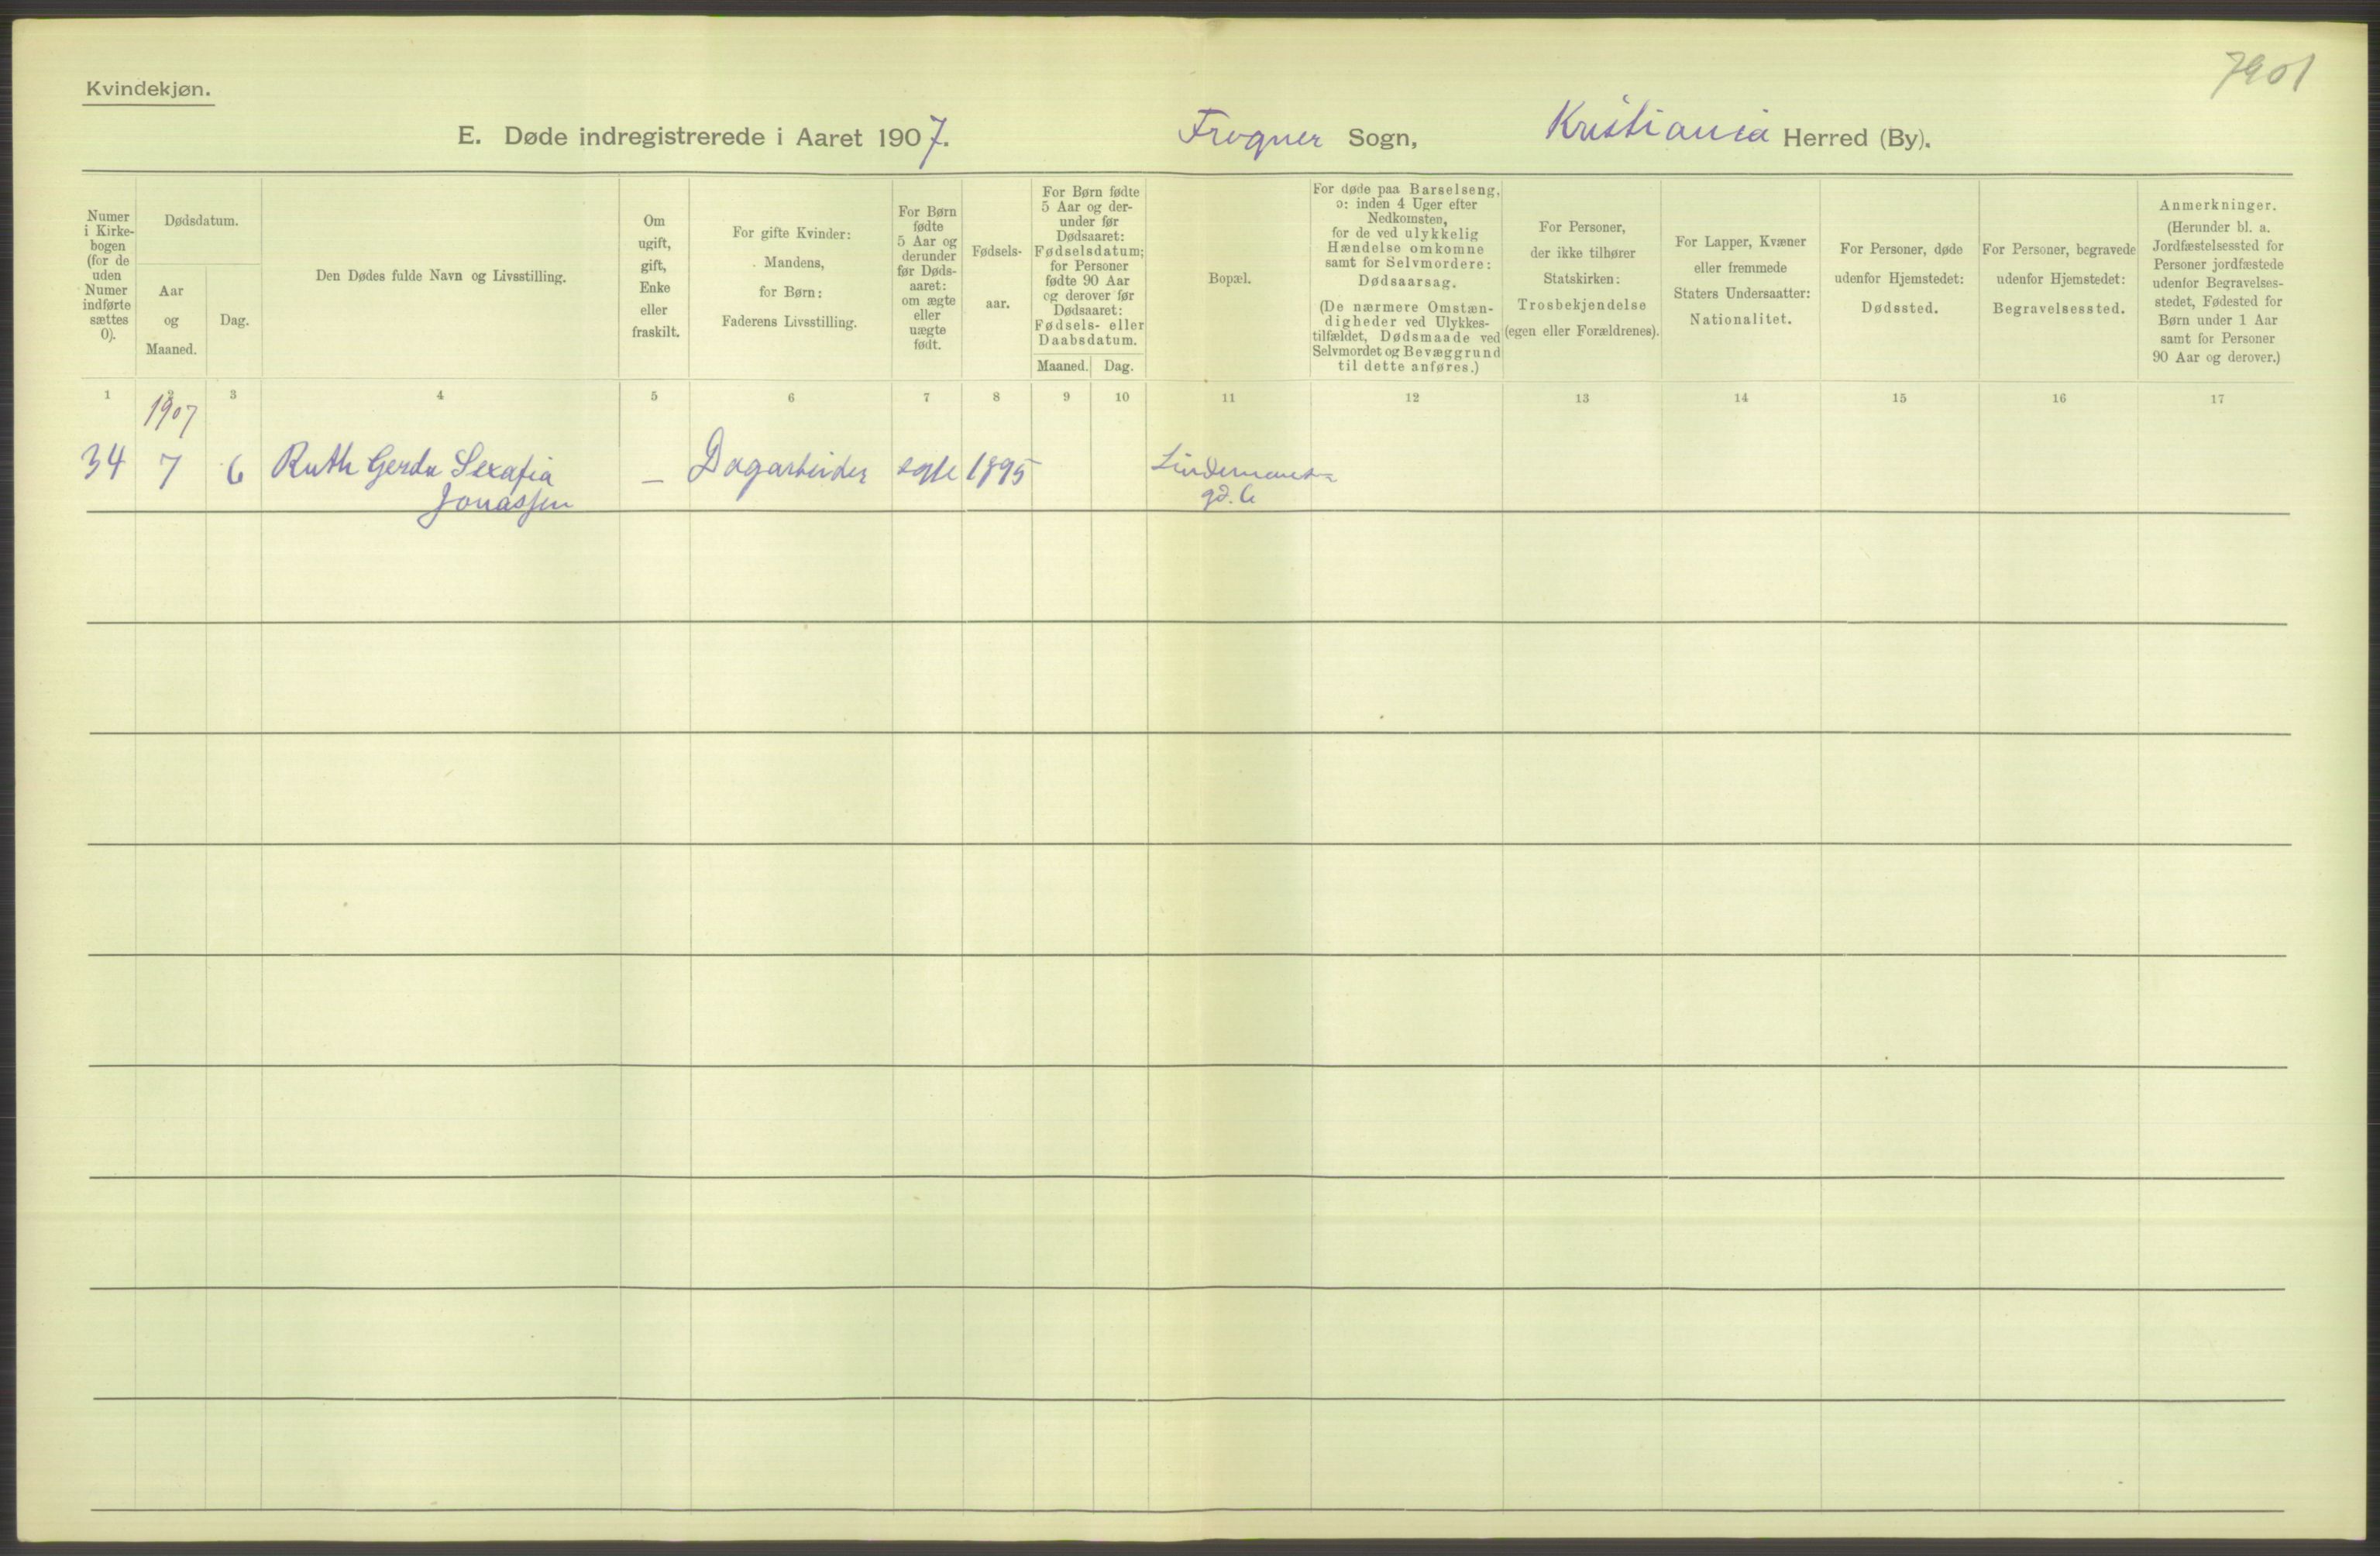 7901
Kvindekjøn.
E. Døde indregistrerede i Aaret 1907. Frogner Sogn, Kristiania Herred (By).
Numer
i Kirke-
bogen
(for de
uden
Numer
indførte
sættes
0).
Dødsdatum.
Aar
og
Maaned.
Dag.
Den Dødes fulde Navn og Livsstilling.
Om
ugift,
gift,
Enke
eller
fraskilt.
For gifte Kvinder:
Mandens,
for Børn:
Faderens Livsstilling.
For Børn
fødte
5 Aar og
derunder
før Døds-
aaret:
om ægte
eller
uægte
født.
Fødsels-
aar.
For Børn fødte
5 Aar og der-
under før
Dødsaaret:
Fødselsdatum;
for Personer
fødte 90 Aar
og derover før
Dødsaaret:
Fødsels- eller
Daabsdatum.
Maaned. Dag.
Bopæl.
For døde paa Barselseng,
ɔ: inden 4 Uger efter
Nedkomsten,
for de ved ulykkelig
Hændelse omkomne
samt for Selvmordere:
Dødsaarsag.
(De nærmere Omstæn-
digheder ved Ulykkes-
tilfældet, Dødsmaade ved
Selvmordet og Bevæggrund
til dette anføres.)
For Personer,
der ikke tilhører
Statskirken:
Trosbekjendelse
(egen eller Forældrenes).
For Lapper, Kvæner
eller fremmede
Staters Undersaatter:
Nationalitet.
For Personer, døde
udenfor Hjemstedet:
Dødssted.
For Personer, begravede
udenfor Hjemstedet:
Begravelsessted.
Anmerkninger.
(Herunder bl. a.
Jordfæstelsessted for
Personer jordfæstede
udenfor Begravelses-
stedet, Fødested for
Børn under 1 Aar
samt for Personer
90 Aar og derover.)
1 2 3 4 5 6 7 8 9 10 11 12 13 14 15 16 17
1907
34 7 6 Ruth Gerda Serafia — Dagarbeider ægte 1895
Jonassen gd. 6